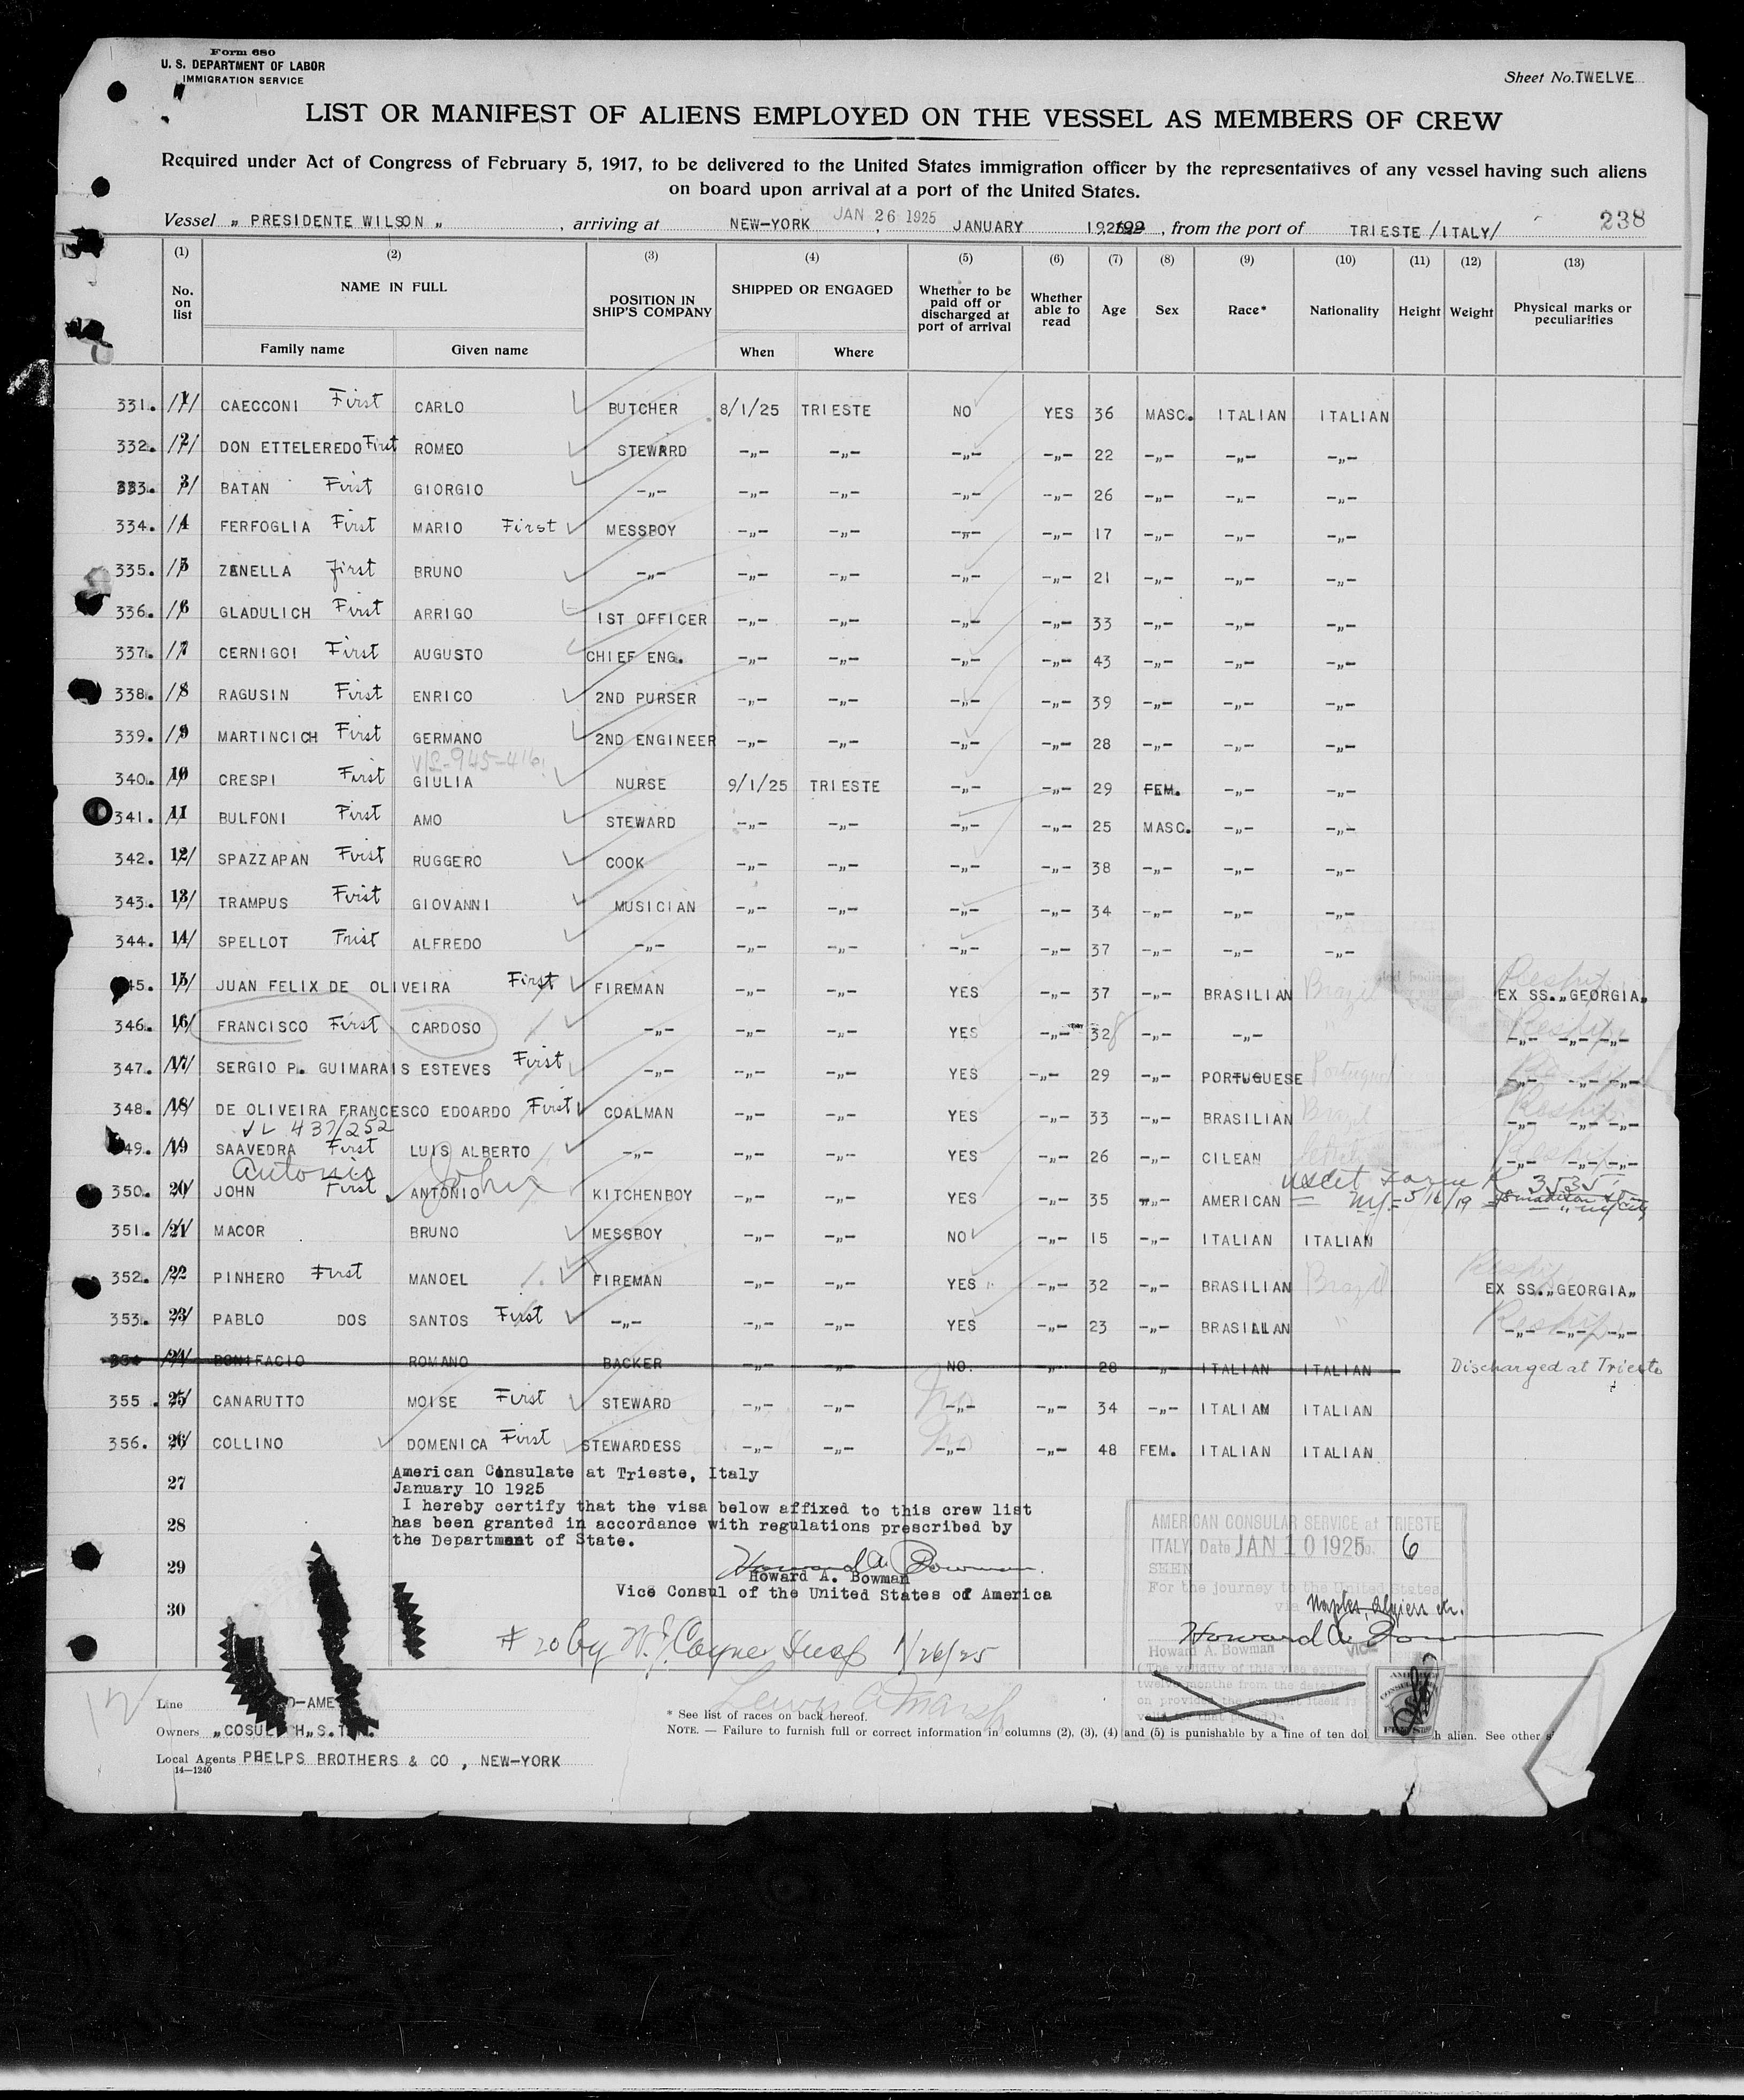 Form 680
U. S. DEPARTMENT OF LABOR
IMMIGRATION SERVICE
Sheet No. TWELVE
LIST OR MANIFEST OF ALIENS EMPLOYED ON THE VESSEL AS MEMBERS OF CREW
Required under Act of Congress of February 5, 1917, to be delivered to the United States immigration officer by the representatives of any vessel having such aliens
on board upon arrival at a port of the United States.
Vessel „ PRESIDENTE WILSON „ , arriving at NEW-YORK JAN 26 1925 , JANUARY , from the port of TRIESTE /ITALY/ 238
(1) (2) (3) (4) (5) (6) (7) (8) (9) (10) (11) (12) (13)
No. on list NAME IN FULL Family name Given name POSITION IN SHIP'S COMPANY SHIPPED OR ENGAGED When Where Whether to be paid off or discharged at port of arrival Whether able to read Age Sex Race* Nationality Height Weight Physical marks or peculiarities
331. 1/ CAECCONI First CARLO BUTCHER 8/1/25 TRIESTE NO YES 36 MASC. ITALIAN ITALIAN
332. 2/ DON ETTELEREDO First ROMEO STEWARD -„- -„- -„- -„- 22 -„- -„- -„-
333. 3/ BATAN First GIORGIO -„- -„- -„- -„- -„- 26 -„- -„- -„-
334. 4 FERFOGLIA First MARIO First MESSBOY -„- -„- -„- -„- 17 -„- -„- -„-
335. 5 ZANELLA First BRUNO -„- -„- -„- -„- -„- 21 -„- -„- -„-
336. 6 GLADULICH First ARRIGO 1ST OFFICER -„- -„- -„- -„- 33 -„- -„- -„-
337. 7 CERNIGOI First AUGUSTO CHIEF ENG. -„- -„- -„- -„- 43 -„- -„- -„-
338. 8 RAGUSIN First ENRICO 2ND PURSER -„- -„- -„- -„- 39 -„- -„- -„-
339. 9 MARTINCICH First GERMANO 2ND ENGINEER -„- -„- -„- -„- 28 -„- -„- -„-
340. 10 CRESPI First GIULIA NURSE 9/1/25 TRIESTE -„- -„- 29 FEM. -„- -„-
341. 11 BULFONI First AMO STEWARD -„- -„- -„- -„- 25 MASC. -„- -„-
342. 12/ SPAZZAPAN First RUGGERO COOK -„- -„- -„- -„- 38 -„- -„- -„-
343. 13/ TRAMPUS First GIOVANNI MUSICIAN -„- -„- -„- -„- 34 -„- -„- -„-
344. 14/ SPELLOT First ALFREDO -„- -„- -„- -„- -„- 37 -„- -„- -„-
45. 15/ JUAN FELIX DE OLIVEIRA First FIREMAN -„- -„- YES -„- 37 -„- BRASILIAN Brazil Reship EX SS.„GEORGIA„
346. 16/ FRANCISCO First CARDOSO -„- -„- -„- YES -„- 32 -„- -„- Reship -„- -„- -„-
347. 17/ SERGIO P. GUIMARAIS ESTEVES First -„- -„- -„- YES -„- 29 -„- PORTUGUESE Portugal -„- -„- -„-
348. 18/ DE OLIVEIRA FRANCESCO EDOARDO First COALMAN -„- -„- YES -„- 33 -„- BRASILIAN Brazil Reship -„- -„- -„-
VL 437/252
49. 19 SAAVEDRA First LUIS ALBERTO -„- -„- -„- YES -„- 26 -„- CILEAN Reship -„- -„- -„-
Antonio John
350. 20/ JOHN First ANTONIO KITCHENBOY -„- -„- YES -„- 35 -„- AMERICAN
351. 21 MACOR BRUNO MESSBOY -„- -„- NO -„- 15 -„- ITALIAN ITALIAN
352. 22 PINHERO First MANOEL FIREMAN -„- -„- YES -„- 32 -„- BRASILIAN Brazil Reship EX SS.„GEORGIA„
353. 23/ PABLO DOS SANTOS First -„- -„- -„- YES -„- 23 -„- BRASILIAN Reship -„- -„- -„-
354 24/ BONIFACIO ROMANO BACKER -„- -„- NO. -„- 28 -„- ITALIAN ITALIAN Discharged at Trieste
355. 25/ CANARUTTO MOISE First STEWARD -„- -„- No -„- -„- 34 -„- ITALIAN ITALIAN
356. 26/ COLLINO DOMENICA First STEWARDESS -„- -„- No -„- -„- 48 FEM. ITALIAN ITALIAN
27
28
29
30
American Consulate at Trieste, Italy
January 10 1925
I hereby certify that the visa below affixed to this crew list
has been granted in accordance with regulations prescribed by
the Department of State.
Howard A. Bowman
Howard A. Bowman
Vice Consul of the United States of America
AMERICAN CONSULAR SERVICE at TRIESTE
ITALY, Date JAN 10 1925 No. 6
SEEN
For the journey to the United States
via Naples, Algiers etc.
Howard A. Bowman
Howard A. Bowman VICE
(The validity of this visa expires
twelve months from the date
# 20 by W. J. Coyne Insp 1/26/25
Lewis A Marsh
12
Line
Owners „COSUL H„S.T.N.
Local Agents PHELPS BROTHERS & CO , NEW-YORK
14—1240
* See list of races on back hereof.
NOTE. — Failure to furnish full or correct information in columns (2), (3), (4) and (5) is punishable by a fine of ten dol h alien. See other s